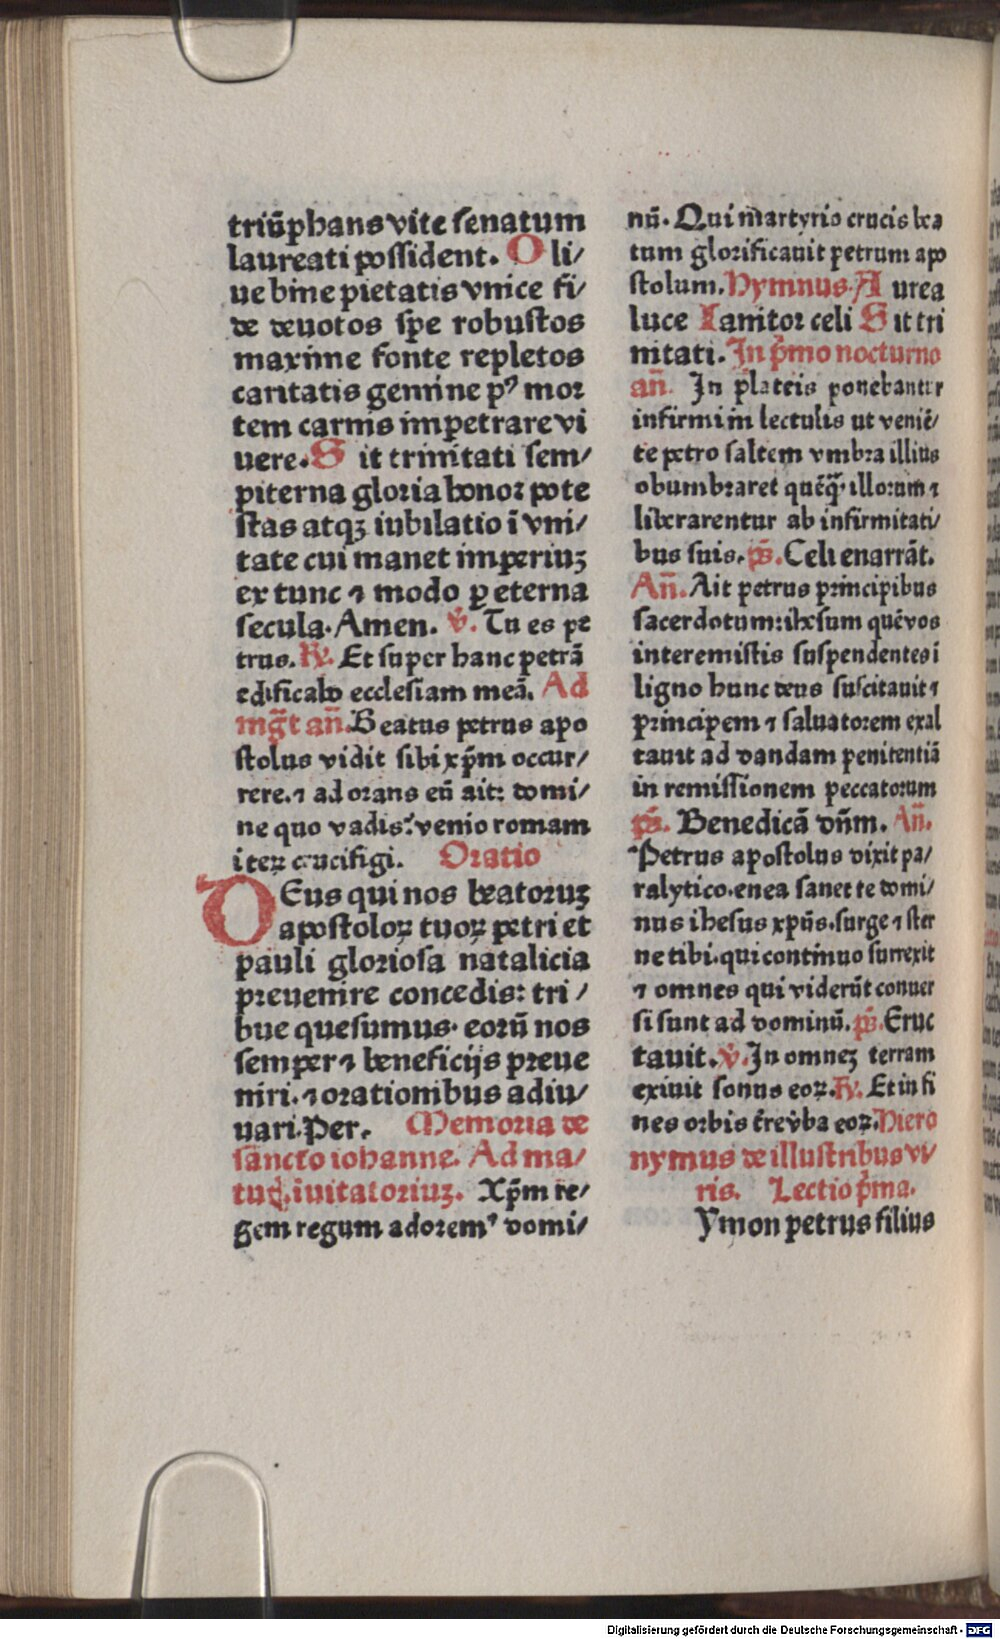 triūphans vite senatum
laureati possident. O li/
ue bine pietatis vnice fi/
de deuotos spe robustos
maxime fonte repletos
caritatis gemine pꝰ mor
tem carnis impetrare vi
uere. S it trinitati sem/
piterna gloria honor pote
stas atqꝫ iubilatio ī vni/
tate cui manet imperiuꝫ
ex tunc ⁊ modo ꝑ eterna
secula. Amen. v̄. Tu es pe
trus. ℞. Et super hanc petrā
edificabo ecclesiam meā. Ad
mḡt an̄. Beatus petrus apo
stolus vidit sibi xp̄m occur/
rere. ⁊ adorans eū ait: domi/
ne quo vadis? venio romam
iteꝝ crucifigi. Oratio
DEus qui nos beatoruꝫ
apostoloꝝ tuoꝝ petri et
pauli gloriosa natalicia
preuenire concedis: tri/
bue quesumus. eorū nos
semper ⁊ beneficijs preue
niri. ⁊ orationibus adiu/
uari. Per. Memoria de
sancto iohanne. Ad ma/
tuꝫ. iuitatoriuꝫ. Xp̄m re/
gem regum adoremꝰ domi/
nū. Qui martyrio crucis bea
tum glorificauit petrum apo
stolum. Hymnus. A urea
luce Ianitor celi S it tri
nitati. In p̄mo nocturno
an̄. In plateis ponebantur
infirmi in lectulis ut veniē/
te petro saltem vmbra illius
obumbraret quēqꝫ illorum ⁊
liberarentur ab infirmitati/
bus suis. ps̄. Celi enarrāt.
An̄. Ait petrus principibus
sacerdotum: ihesum quē vos
interemistis suspendentes ī
ligno hunc deus suscitauit ⁊
principem ⁊ saluatorem exal
tauit ad dandam penitentiā
in remissionem peccatorum
ps̄. Benedicā dn̄m. An̄.
Petrus apostolus dixit pa/
ralytico. enea sanet te domi/
nus ihesus xp̄us. surge ⁊ ster
ne tibi. qui continuo surrexit
⁊ omnes qui viderūt conuer
si sunt ad dominū. ps̄. Eruc
tauit. v̄. In omneꝫ terram
exiuit sonus eoꝝ. ℞. Et in fi
nes orbis t̄re v̄ba eoꝝ. Hiero
nymus de illustribus vi/
ris. Lectio p̄ma.
Ymon petrus filius
Digitalisierung gefördert durch die Deutsche Forschungsgemeinschaft - DFG